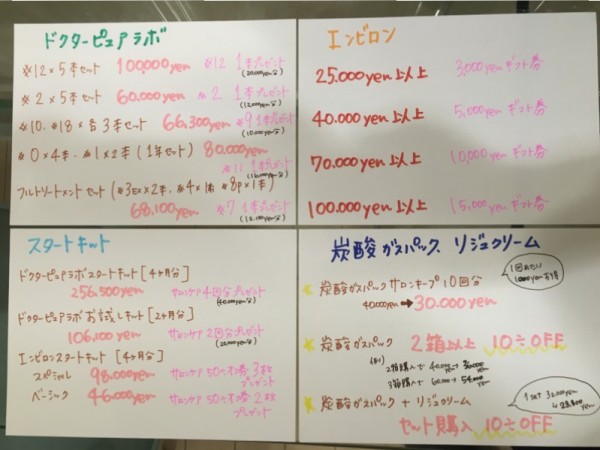 ドクターピュアラボ
※12×5本セット 100,000yen ※12 1本プレゼント
(20,000yen分)
※2×5本セット 60,000yen ※2 1本プレゼント
(12,000yen分)
※10. ※18×各3本セット 66,300yen ※9 1本プレゼント
(10,000yen分)
※0×4本. ※1×2本(1年セット) 80,000yen
※11 1本プレゼント
フルトリートメントセット(※3EX×2本, ※4×1本 ※8P×1本)
68,100yen ※7 1本プレゼント
(12,100yen分)
エンビロン
25.000yen以上 3,000yenギフト券
40.000yen以上 5,000yenギフト券
70.000yen以上 10,000yenギフト券
100.000yen以上 15,000yenギフト券
スタートキット
ドクターピュアラボスタートキット[4ヶ月分]
256,500yen サロンケア4回分プレゼント
(40,000yen分)
ドクターピュアラボお試しキット[2ヶ月分]
106,100yen サロンケア2回分プレゼント
(20,000yen分)
エンビロンスタートキット[4ヶ月分]
スペシャル 98,000yen サロンケア50%不券3枚
プレゼント
ベーシック 46,000yen サロンケア50%不券2枚
プレゼント
炭酸ガスパック、リジュクリーム
1回あたり
1,000yenお得
炭酸ガスパックサロンキープ10回分
40,000yen→30.000yen
炭酸ガスパック 2箱以上 10%OFF
(例)
2箱購入で 40,000yen→36,000yen
3箱購入で 60,000→54,000yen
炭酸ガスパック+リジュクリーム
セット購入 10%OFF
1set 32,000yen
↓28,800yen